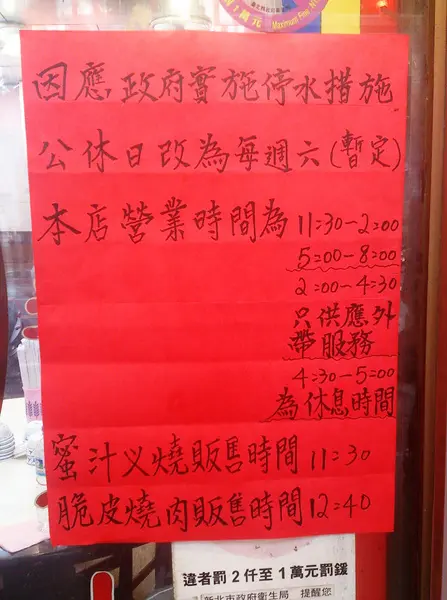 因應政府實施停水措施
公休日改為每週六(暫定)
本店營業時間為11:30-2:00
5:00-8:00
2:00-4:30
只供應外
帶服務
4:30-5:00
為休息時間
蜜汁义燒販售時間11:30
脆皮燒肉販售時間12:40
違者罰2仟至1萬元罰鍰
新北市政府衛生局 提醒您